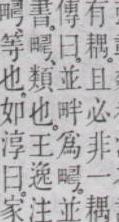 有耦。且必非一耦
傳曰。並畔爲𤲮。並
書。𤲮。類也。王逸注
𤲮。等也。如淳曰。家